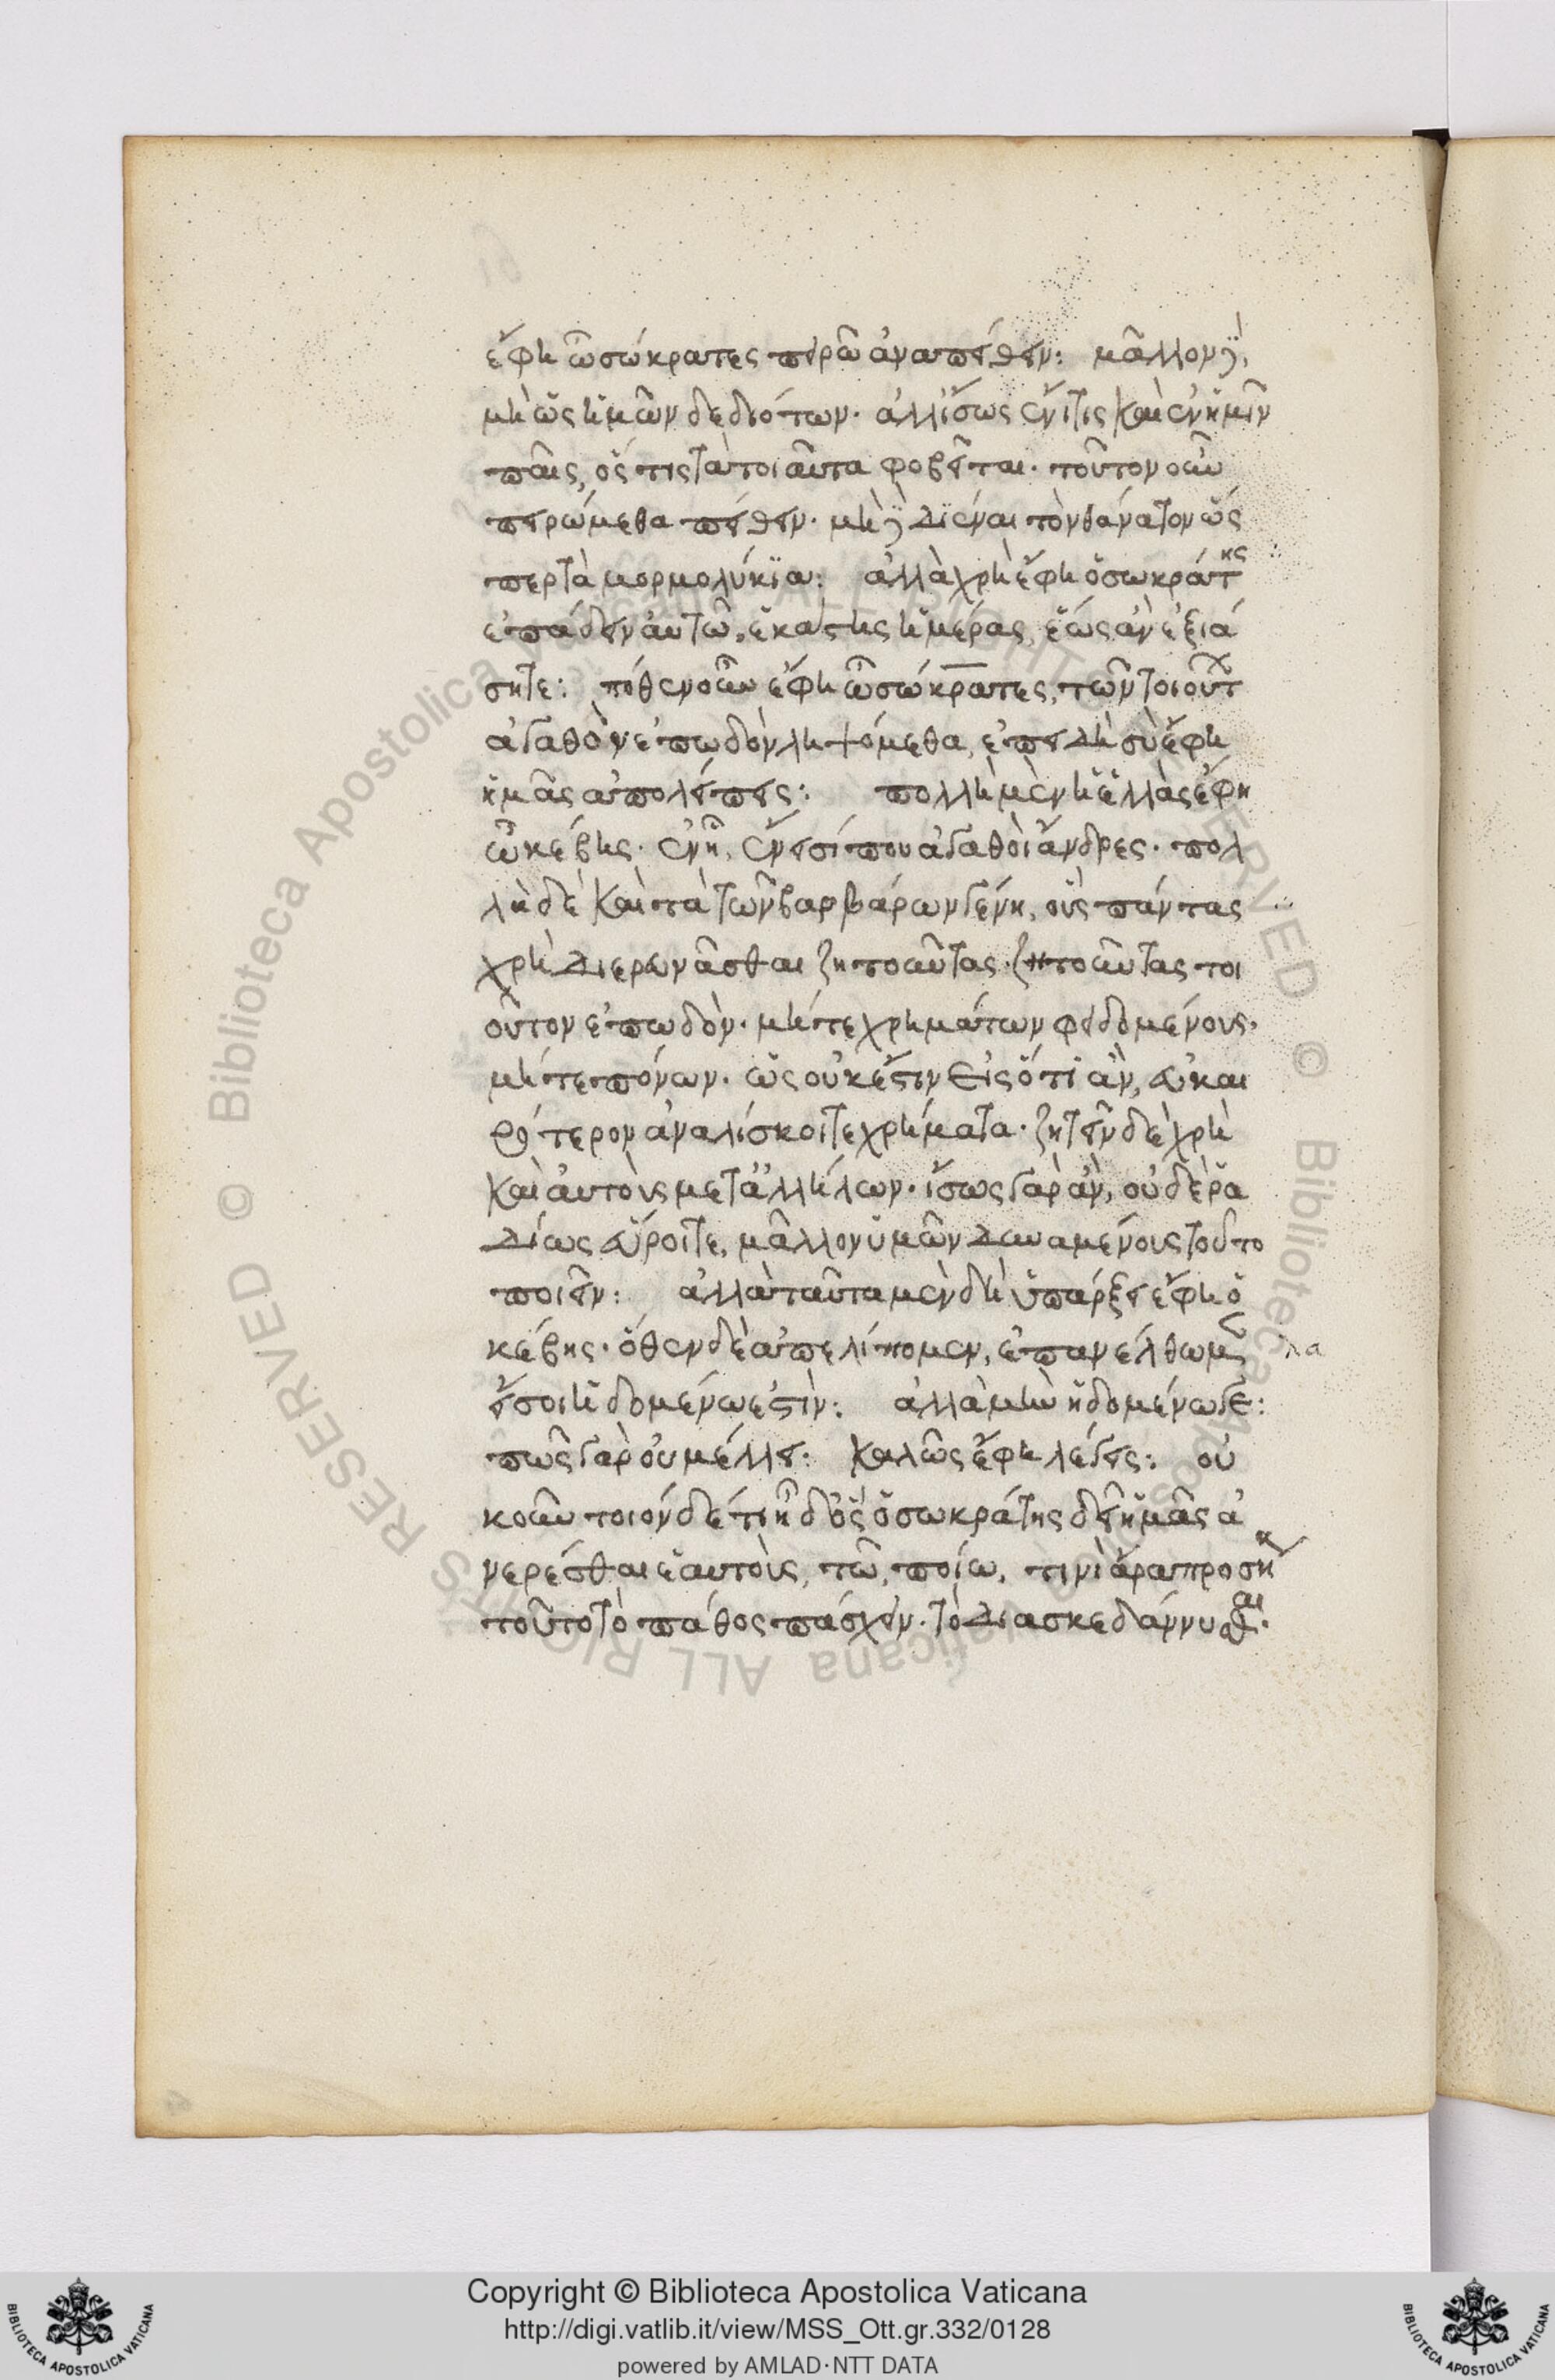 ἔφη ὦ σώκρατες πειρῶ ἀναπείθειν: μᾶλλον δὲ,
μὴ ὡς ἡμῶν δεδιότων. ἀλλ' ἴσως ἔνι τις καὶ ἐν ἡμῖν
παῖς, ὅς τις τὰ τοιαῦτα φοβεῖται. τοῦτον οὖν
πειρώμεθα πείθειν. μὴ δεδιέναι τὸν θάνατον ὥς
περ τὰ μορμολύκϊα: ἀλλὰ χρὴ ἔφη ὁ σωκράτης
ἐπάδειν αὐτῶ, ἑκάστης ἡμέρας, ἕως ἀν ἐξιά
σητε: πόθεν οὖν ἔφη ὦ σώκρατες, τῶν τοιούτων
ἀγαθὸν ἐπωδὸν ληψόμεθα, ἐπειδὴ σὺ ἔφη
ἡμᾶς ἀπολείπεις: πολλὴ μὲν ἡ ἑλλὰς ἔφη
ὦ κέβης. ἐν ἧ, ἔνεισί που ἀγαθοὶ ἄνδρες. πολ
λὰ δὲ καὶ τὰ τῶν βαρβάρων γένη, οὓς πάντας
χρὴ διερευνᾶσθαι ζητοῦντας. ζητοῦντας τοι
οῦτον ἐπωδὸν. μήτε χρημάτων φειδομένους.
μήτε πόνων. ὡς οὐκ ἔστιν εἰς ὅτι ἀν, εὐκαι
ρότερον ἀναλίσκοιτε χρήματα. ζητεῖν δὲ χρὴ
καὶ αὐτοὺς μετ' ἀλλήλων. ἴσως γὰρ ἀν, οὐδὲ ῥα
δίως εὕροιτε, μᾶλλον ὑμῶν δυναμένους τοῦτο
ποιεῖν: ἀλλὰ ταῦτα μὲν δὴ ὑπάρξει ἔφη ὁ
κέβης. ὅθεν δὲ ἀπελίπομεν, ἐπανέλθωμεν
εἴ σοι ἡδομένω ἐστὶν: ἀλλὰ μὴν ἡδομένω γε:
πῶς γὰρ οὐ μέλλει: καλῶς ἔφη λέγεις: οὐ
κοῦν τοιόνδε τι ἦ δ' ὃς ὁ σωκράτης δεῖ ἡμᾶς ἀ
νερέσθαι ἑαυτοὺς, τῶ, ποίω, τινὶ ἄρα προσήκει
τοῦτο τὸ πάθος πάσχειν. τὸ διασκεδάννυσθαι.
Copyright © Biblioteca Apostolica Vaticana
http://digi.vatlib.it/view/MSS_Ott.gr.332/0128
powered by AMLAD·NTT DATA